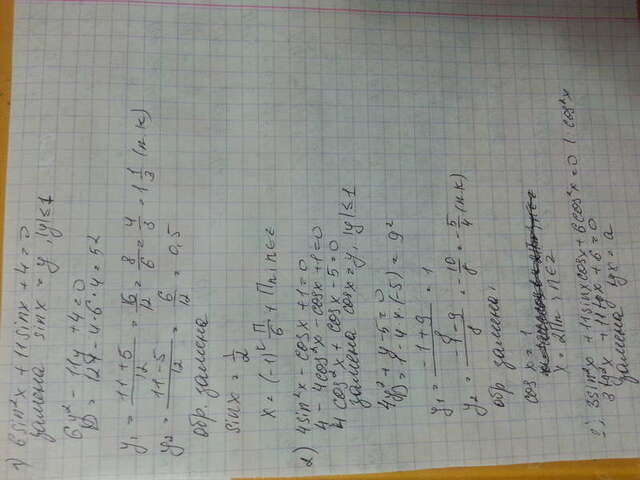 1) 6sin²x + 11sinx + 4 = 0
замена sinx = y, |y| ≤ 1
6y² - 11y + 4 = 0
D = 121 - 4·6·4 = 52
y₁ = (11+5)/12 = 16/12 = 8/6 = 4/3 = 1 1/3 (п.к)
y₂ = (11-5)/12 = 6/12 = 0,5
обр. замена
sinx = 1/2
x = (-1)ⁿ π/6 + πn, n∈z
2) 4sin²x - cosx + 1 = 0
4 - 4cos²x - cosx + 1 = 0
4cos²x + cosx - 5 = 0
замена cosx = y, |y| ≤ 1
4y² + y - 5 = 0
y₁ = (-1+9)/8 = 1
y₂ = (-1-9)/8 = -10/8 = -5/4 (п.к)
обр. замена:
cos x = 1
x = 2πn, n∈z
3sin²x + 11sinxcosx + 6cos²x = 0 | cos²x
3tg²x + 11tgx + 6 = 0
tgx = a